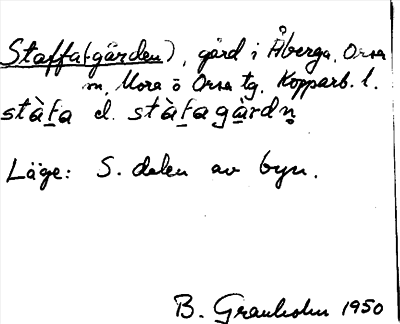 Staffa(-gården), gård i Åberga, Orsa
sn, Mora o Orsa tg, Kopparb. l.
stàfa el. stàfagàrdn̥
Läge: S. delen av byn.
B. Granholm 1950